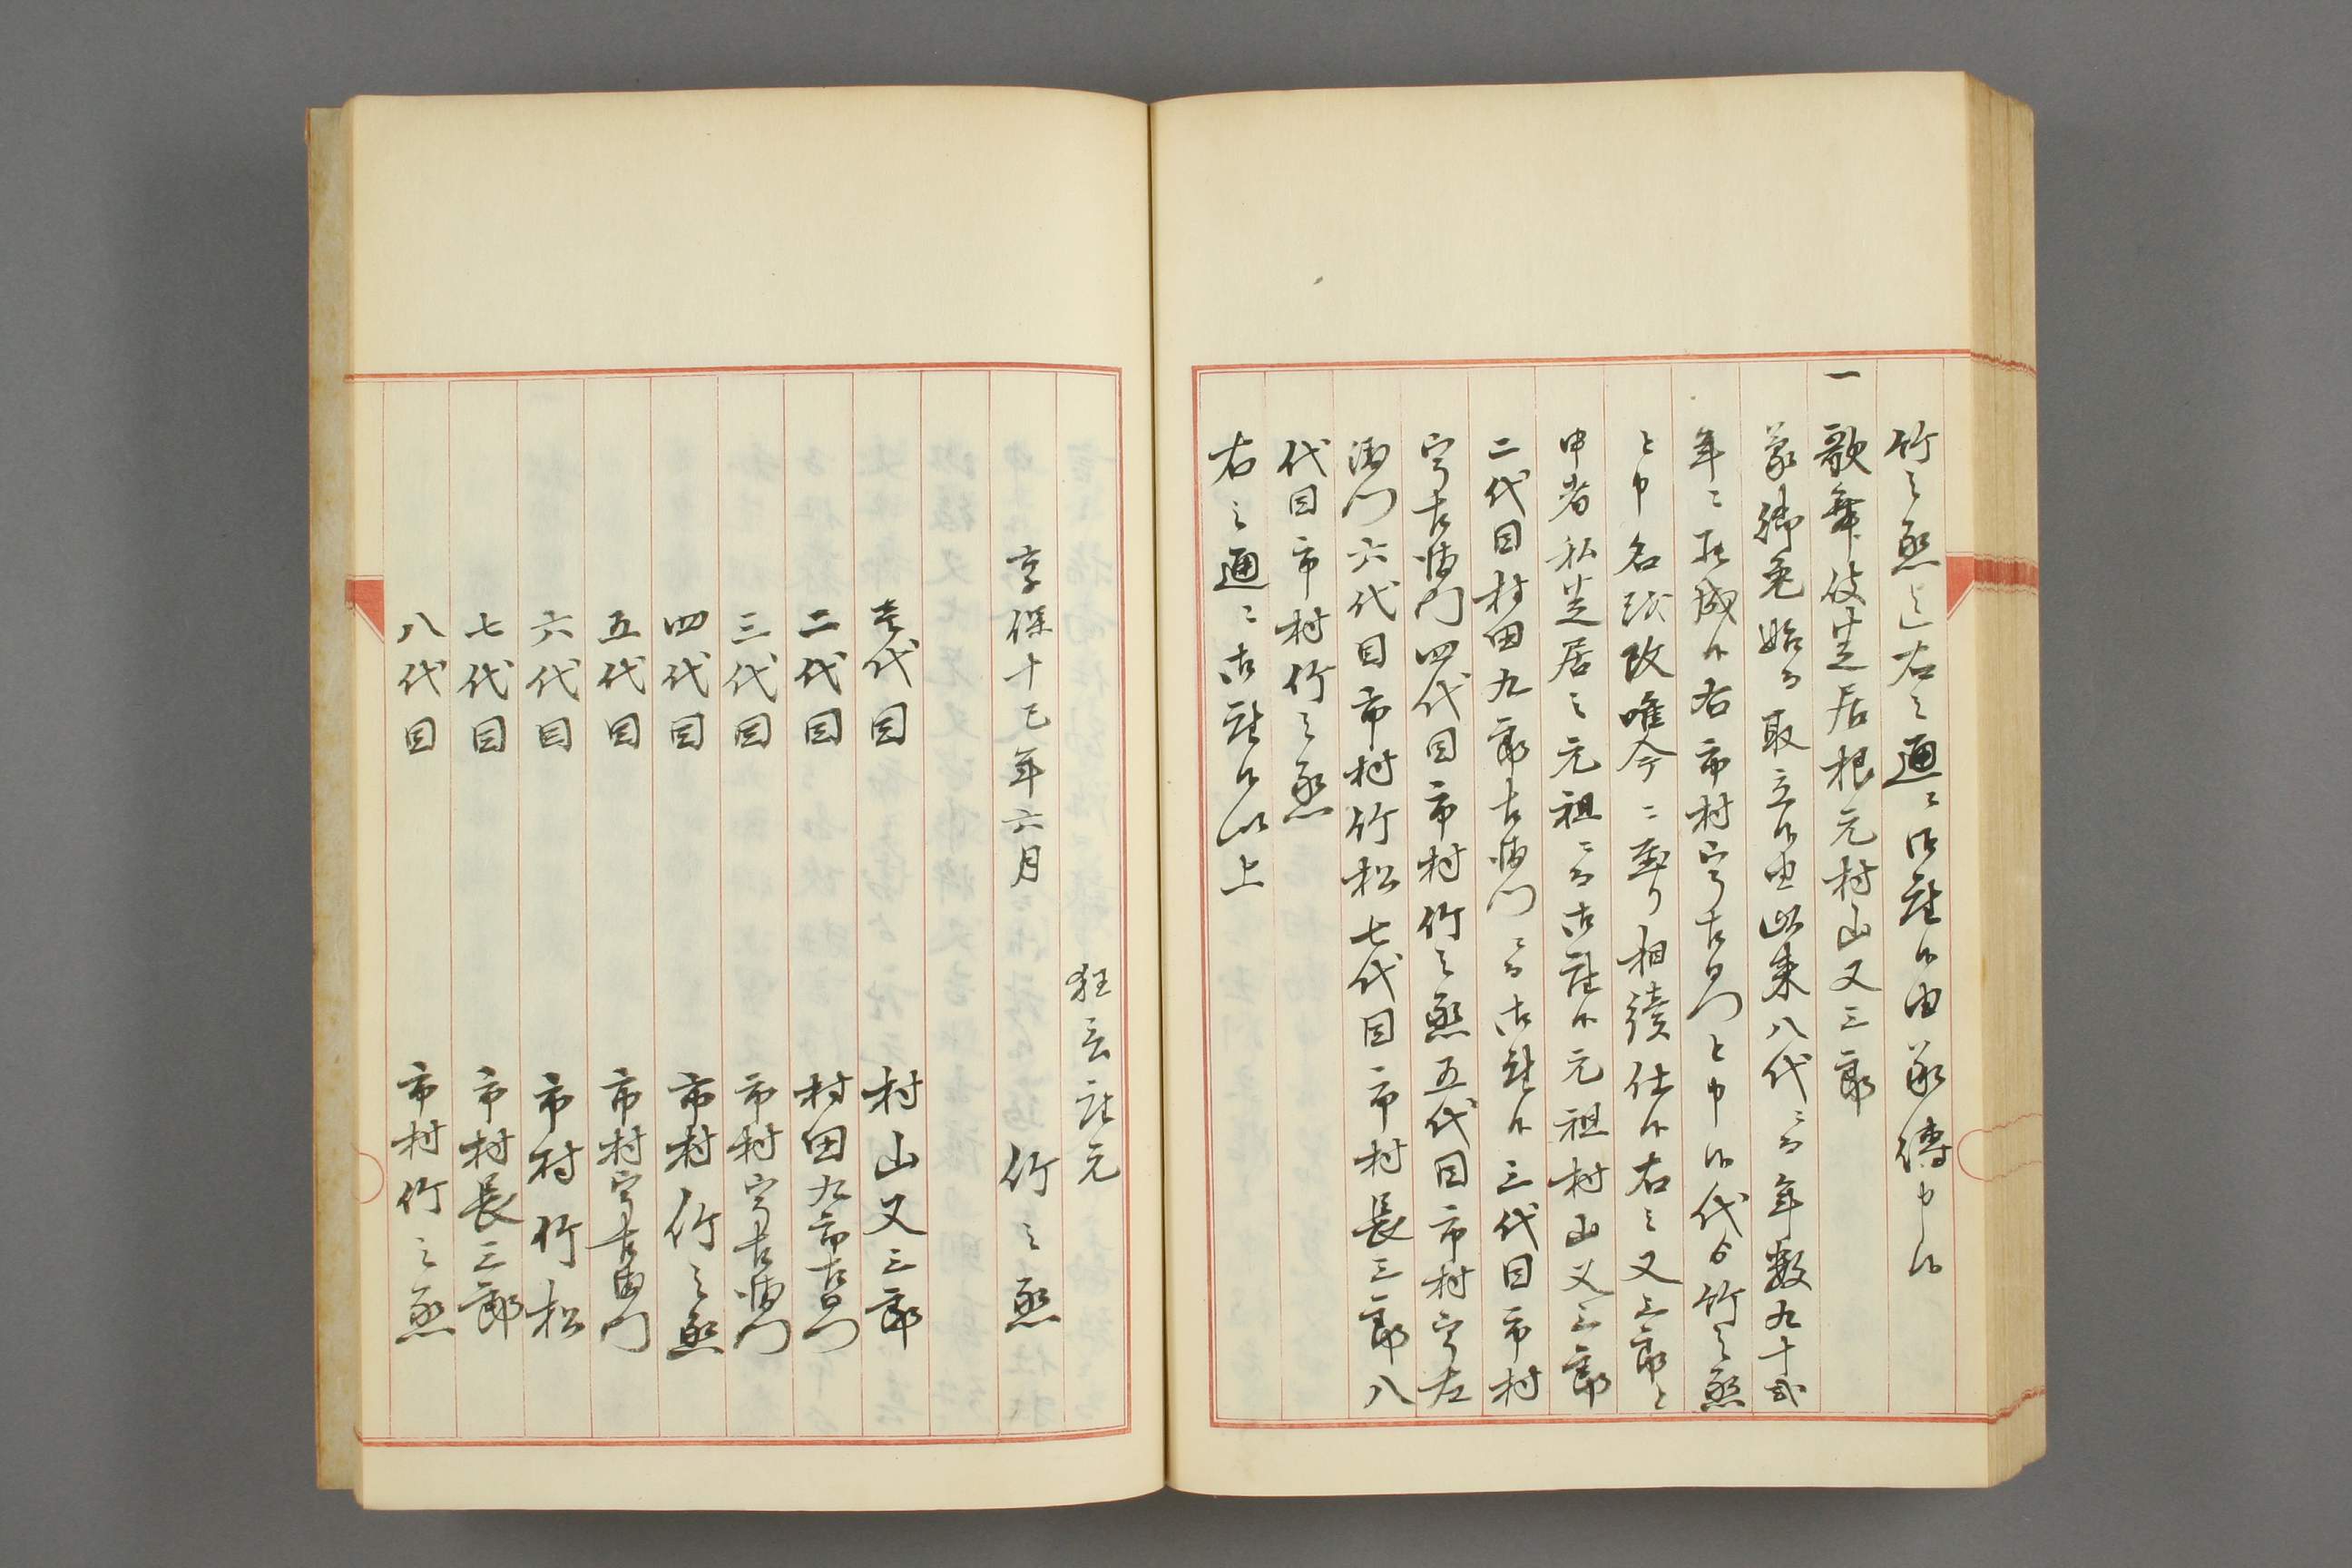 竹之丞迄右之通ニ御座候由承傳申候
一歌舞伎芝居根元村山又三郎
蒙御免始而取立候由此来八代ニ而年数九十弐
年ニ罷成候右市村宇右衛門と申候代ゟ竹之丞
と申名ニ改唯今ニ至り相續仕候右之又三郎と
申者私芝居之元祖ニ而御座候元祖村山又三郎
二代目村田九郎右衛門ニ而御座候三代目市村
宇右衛門四代目市村竹之丞五代目市村宇左
衛門六代目市村竹松七代目市村長三郎八
代目市村竹之丞
右之通ニ御座候以上
狂言座元
享保十巳年六月 竹之丞
壱代目 村山又三郎
二代目 村田九郎右衛門
三代目 市村宇右衛門
四代目 市村竹之丞
五代目 市村宇右衛門
六代目 市村竹松
七代目 市村長三郎
八代目 市村竹之丞